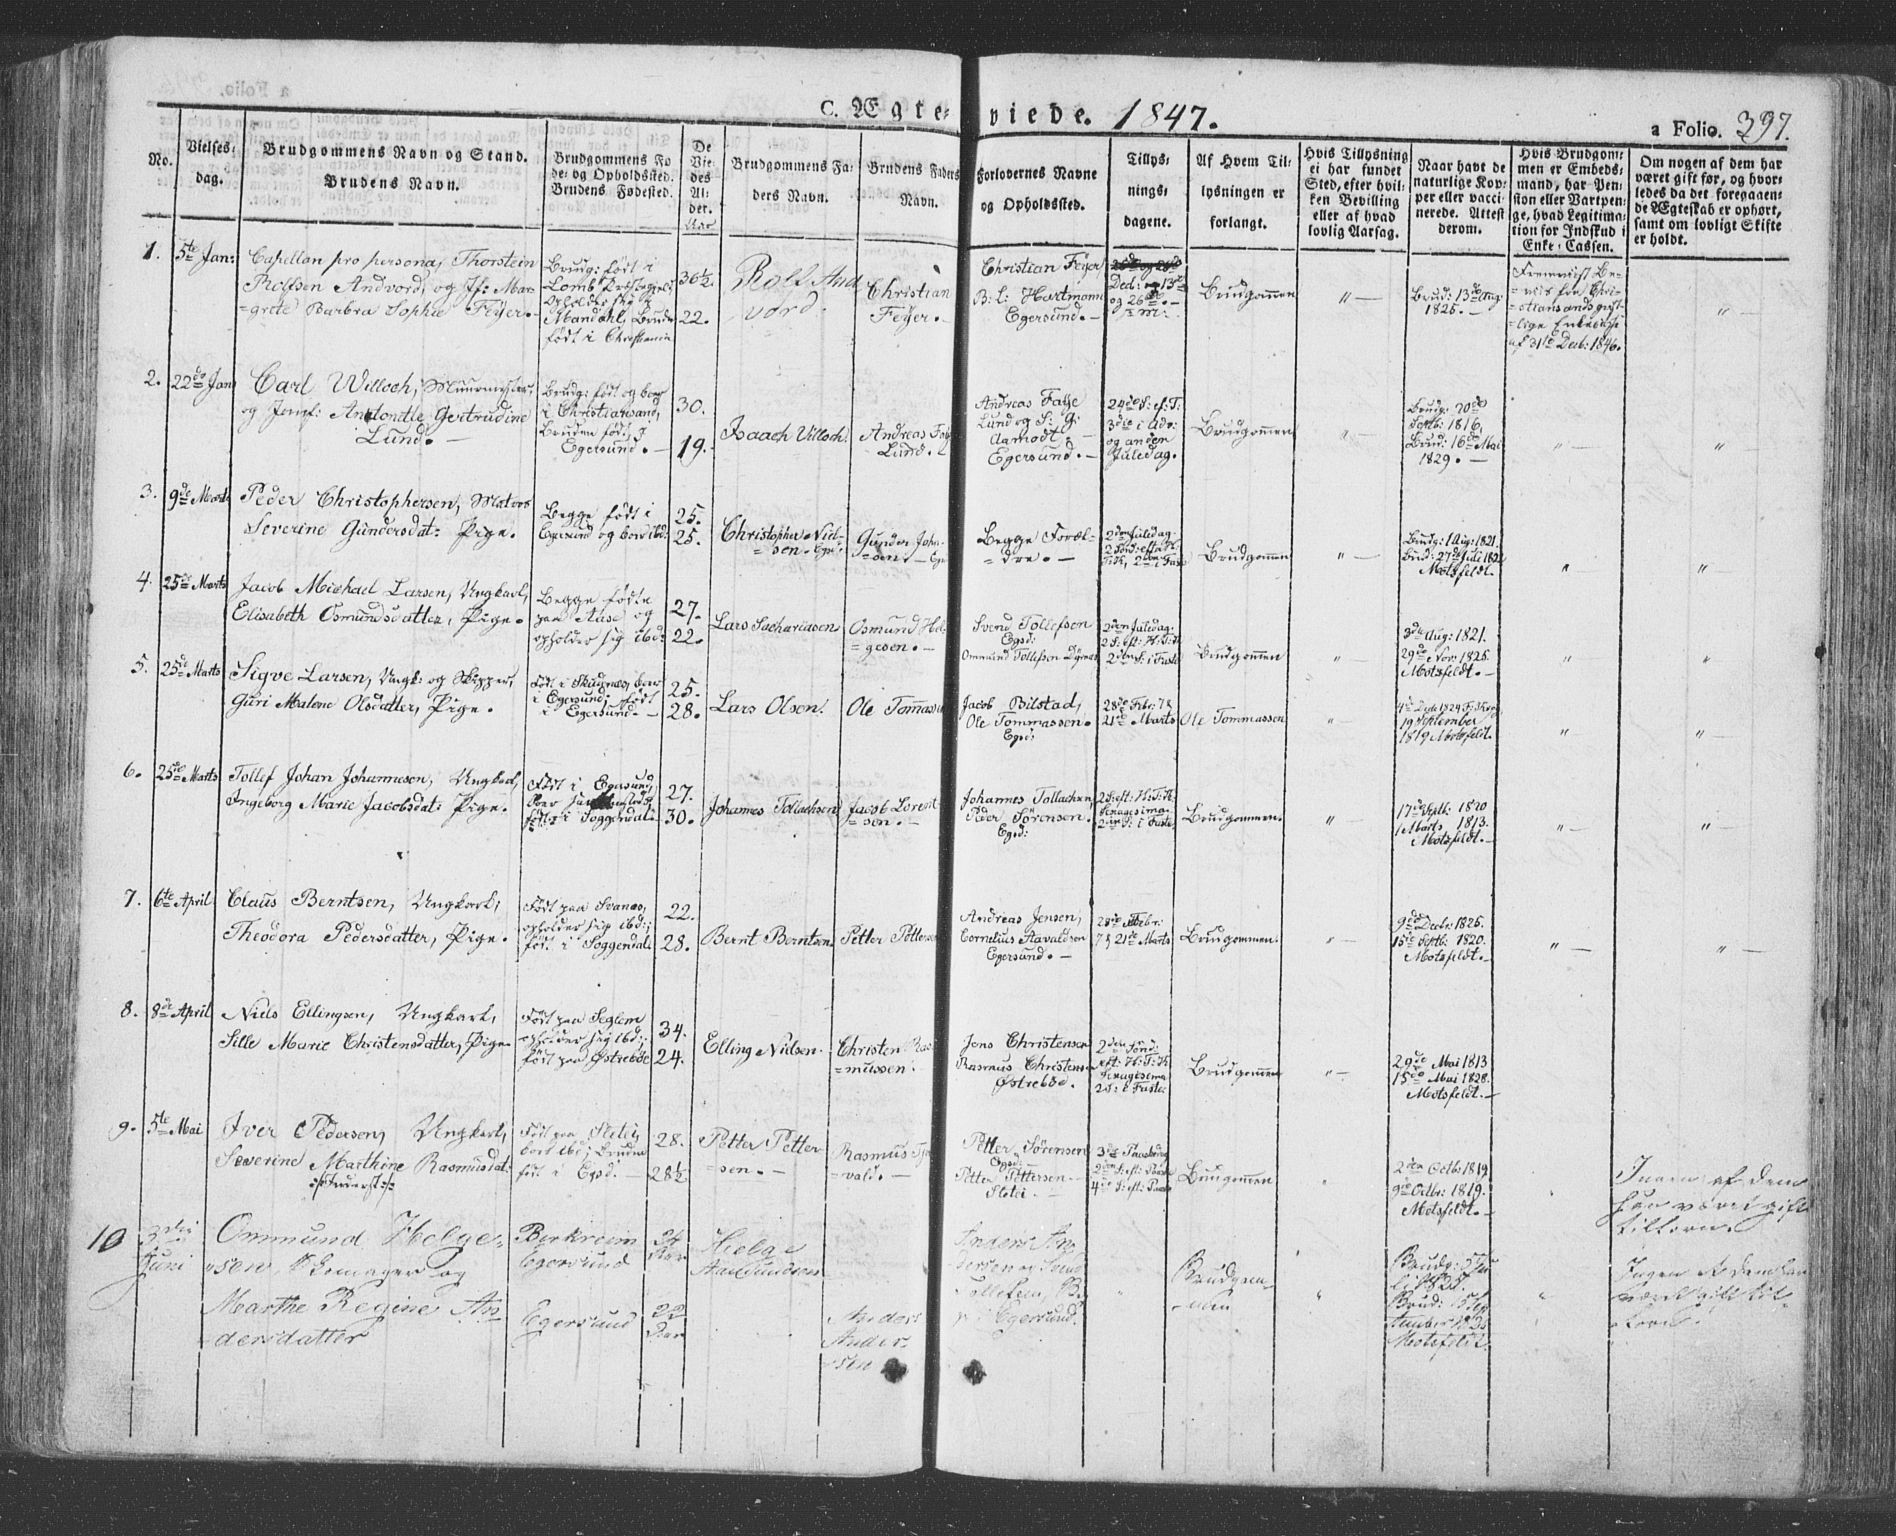 C. Ægteviede. 1847.
a Folio. 397.
No.
Vielsesdag.
Brudgommens Navn og Stand.
Brudens Navn.
Brudgommens Fø
de- og Opholdssted.
Brudens Fødested.
De
Vie
des
Al
der.
Aar
Brudgommens Fa
ders Navn.
Brudens Faders
Navn.
Forlovernes Navne
og Opholdssted.
Tillys-
nings-
dagene.
Af Hvem Til-
lysningen er
forlangt.
Hvis Tillysning
ei har fundet
Sted, efter hvil-
ken Bevilling
eller af hvad
lovlig Aarsag.
Naar havt de
naturlige Kop-
per eller vacci-
nerede. Attest
derom.
Hvis Brudgom-
men er Embeds-
mand, har Pen-
sion eller Vartpen-
ge, hvad Legitima-
tion for Indskud i
Enke-Cassen.
Om nogen af dem har
været gift før, og hvor-
ledes da det foregaaen-
de Ægteskab er ophørt,
samt om lovligt Skifte
er holdt.
1. 5te Jan:
Capellan pro persona, Thorstein
Rolfsen Andvord, og Jf: Mar-
=grete Barbra Sophie Feyer.
Brudg: født i
Lomb Præstegjeld
opholder sig i
Mandahl, Bruden
født i Christiania
36½.
22.
Rolf And
vord.
Christian
Feyer.
Christian Feyer
B: C: Hartmann
Egersund.
Dec: og 13de
og 26de
Brudgommen
" —
Brud: 13de Aug:
1825.
Fremviist Be-
=viis fra Chri-
=stiansands gejst-
=lige Enkecasse
af 31te Decb: 1846.
" —
2. 22de Jan
Carl Willoch, Muurmester,
og Jomf: Antonette Gertrudine
Lund.
Brudg: født og boer
i Christiansand,
Bruden fød: i
Egersund.
30.
19.
Isaach Villoch.
Andreas Faye
Lund.
Andreas Faye
Lund og S: G:
Aamodt,
Egersund.
24de S: ef: T:
3die i Adv:
og anden
Juledag.
Brudgommen
" —
Brudg: 20de
Septb: 1816,
Brud: 16de Mai
1829.
" —
" —
3. 9de Marts
Peder Christophersen, Matros
Severine Gundersdat: Pige.
Begge født i
Egersund og boer ibd:
25.
25.
Christopher Niel-
=sen. Egsd:
Gunder John-
=sen. Egsd
Begge Foræl-
=dre.
2den Juledag
2 Sønd: efter H:
T: K, 2den i Faste
Brudgommen
" —
Brudg: 1 Aug: 1821.
Brud: 27de Juli 182
Motsfeldt.
" —
" —
4. 25de Marts
Jacob Michael Larsen, Ungkarl,
Elisabeth Osmundsdatter, Pige.
Begge fødte
paa Aase og
opholder sig ibd:
27.
22.
Lars Sachariasen
Osmund Hel-
=gesen.
Svend Tollefsen
Egsd:
Ommund Tollefssen Dyrnes
2den Juledag
2 S: eft: H: T: K
2den S: i Faste
Brudgommen
" —
3die Aug: 1821.
29de Nov: 1825.
Motsfeldt.
" —
"
5. 25de Marts
Sigve Larsen, Ungk: og Skipper,
Guri Malene Olsdatter, Pige.
Født i Skudnæs, boer
i Egersund, født
i Egersund.
25.
28.
Lars Olsen.
Ole Tommassen
Jacob Bilstad,
Ole Tommassen.
Egsd:
28de Febr: 7d
21de Marts
Ole Tommassen
" —
4de Decb: 1824
19 September
1819 Motsfeldt.
" —
" —
6. 25de Marts
Tollef Johan Johannesen, Ungkarl,
Ingeborg Marie Jacobsdat: Pige.
Født i Egersund,
født i Soggendal.
27.
30.
Johannes Tollachsen
Jacob Lorent-
=sen.
Johannes Tollachsen,
Peder Sörensen.
Egsd:
2 S: eft: H: T: K:
Sexagesima
2den S: i Faste
Brudgommen.
" —
17de Septb: 1820
1 Marts 1813.
Motsfeldt.
" —
" —
7. 6te April
Claus Berntsen, Ungkarl,
Theodora Pedersdatter, Pige.
Født paa Svanæs,
opholder sig ibd:,
født i Soggendal
22.
28.
Bernt Berntsen
Petter Pettersen
Andreas Jensen,
Cornelius Aavaldsen
Egersund.
28de Febr:
7 & 21de Marts
Brudgommen.
" —
9de Decbr: 1825.
15de Septb: 1820.
Motsfeldt.
" —
" —
8. 8de April
Niels Ellingsen, Ungkarl,
Sille Marie Christensdatter, Pige
Født paa Seglem
opholder sig ibd:,
født paa Østrebøe
34.
24.
Elling Nielsen
Christen Ras
=mussen.
Jens Christensen
Rasmus Christensen
Østrebøe.
2den Sønd:
eft: H: T: K
Sexagesima
2 S: i Faste
Brudgommen
" —
29de Mai 1813
15de Mai 1828.
Motsfeldt.
9. 5te Mai
Iver Pedersen, Ungkarl,
Severine Marthine Rasmusdat:
Født paa Sletei,
boer ibd; Bruden
fød: i Egsd.
28.
28½
Petter Petter
=sen.
Rasmus Tja
=vald.
Petter Sörensen
Egsd:
Petter Pettersen
Sletei
3de Paaskedag
2den S: eft: Paaske
4de S: eft: Paaske
Brudgommen
"
2den Octb: 1819
9de Octbr: 1819.
Motsfeldt.
"
Ingen af dem
har været gift
tilforn.
10 3die
Juni
Ommund Helge-
=sen Skomager og
Marthe Regine An-
=dersdatter
Birkreim
Egersund
Egersund
24
Aar
22
Aar
Helge
Aamundsen
Anders
Ander
=sen
Anders An
dersen og Svend
Tollefsen, B.
Egersund.
"
Brudgom-
men
"
Brudg: 5 Ju
li 1825.
Brud: 15 Sep
tember 1825
Motsfeldt.
"
Ingen af dem har
været gift til-
forn.